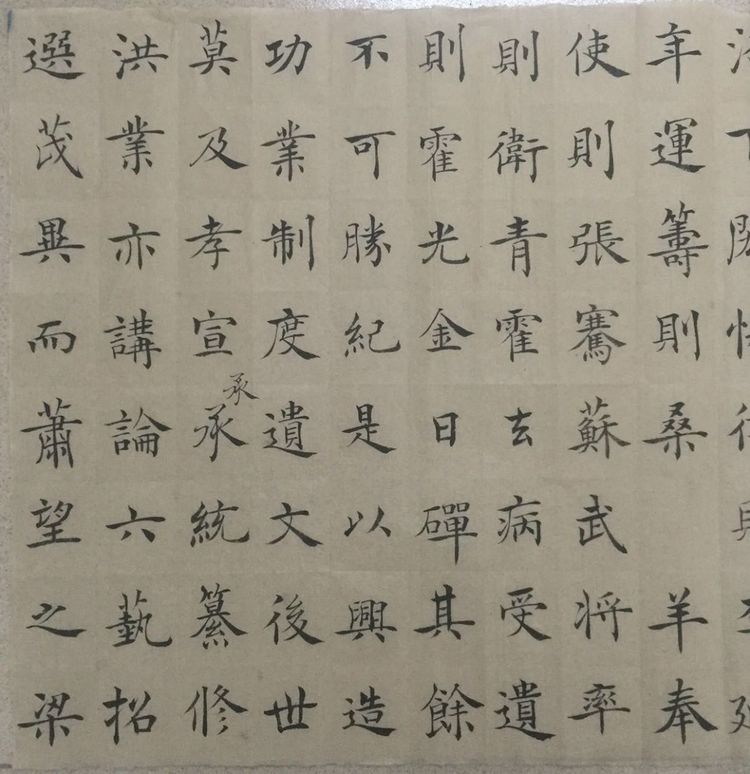 年運籌則桑羊奉
使則張騫蘇武將率
則衛青霍去病受遺
則霍光金日磾其餘
不可勝紀是以興造
功業制度遺文後世
承
莫及孝宣承統纂修
洪業亦講論六藝招
選茂異而蕭望之梁